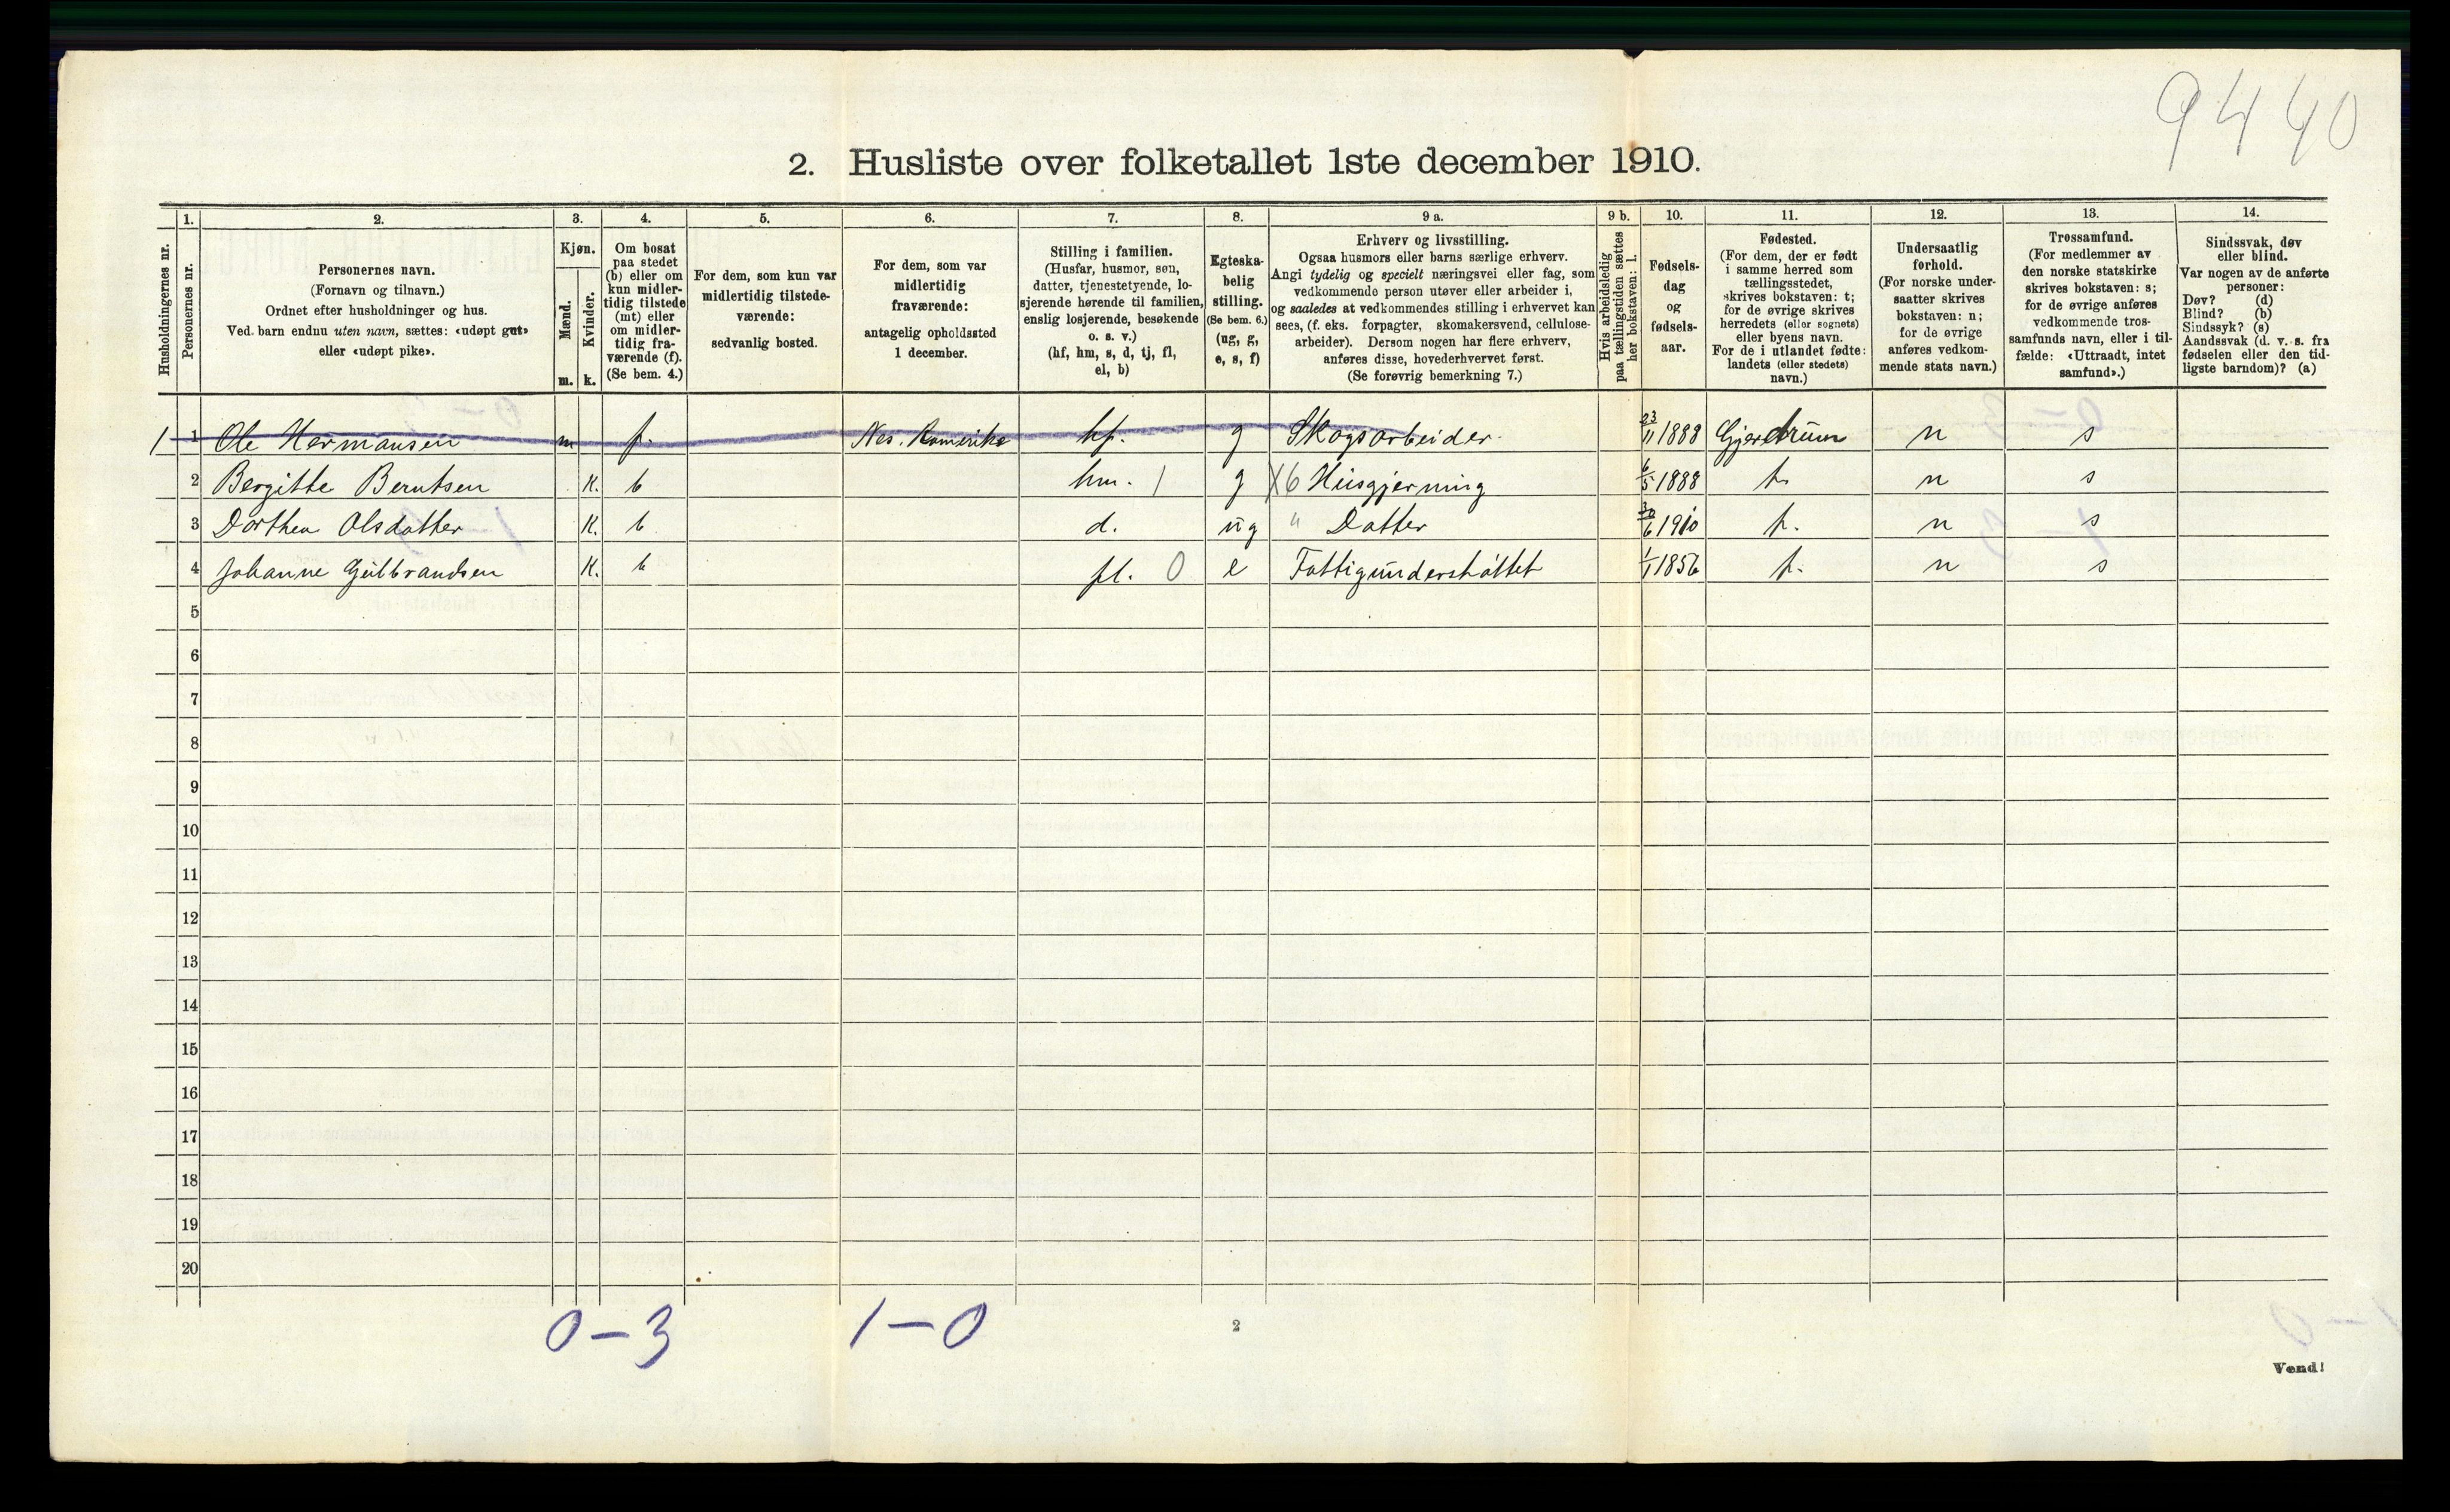 9440
2. Husliste over folketallet 1ste december 1910.
1. 2. 3. 4. 5. 6. 7. 8. 9 a. 9 b. 10. 11. 12. 13. 14.
Husholdningernes nr.
Personernes nr.
Personernes navn.
(Fornavn og tilnavn.)
Ordnet efter husholdninger og hus.
Ved barn endnu uten navn, sættes: «udøpt gut»
eller «udøpt pike».
Kjøn.
Mænd.
Kvinder.
m. k.
Om bosat
paa stedet
(b) eller om
kun midler-
tidig tilstede
(mt) eller
om midler-
tidig fra-
værende (f).
(Se bem. 4.)
For dem, som kun var
midlertidig tilstede-
værende:
sedvanlig bosted.
For dem, som var
midlertidig
fraværende:
antagelig opholdssted
1 december.
Stilling i familien.
(Husfar, husmor, søn,
datter, tjenestetyende, lo-
sjerende hørende til familien,
enslig losjerende, besøkende
o. s. v.)
(hf, hm, s, d, tj, fl,
el, b)
Egteska-
belig
stilling.
(Se bem. 6.)
(ug, g,
e, s, f)
Erhverv og livsstilling.
Ogsaa husmors eller barns særlige erhverv.
Angi tydelig og specielt næringsvei eller fag, som
vedkommende person utøver eller arbeider i,
og saaledes at vedkommendes stilling i erhvervet kan
sees, (f. eks. forpagter, skomakersvend, cellulose-
arbeider). Dersom nogen har flere erhverv,
anføres disse, hovederhvervet først.
(Se forøvrig bemerkning 7.)
Hvis arbeidsledig
paa tællingstiden sættes
her bokstaven: l.
Fødsels-
dag
og
fødsels-
aar.
Fødested.
(For dem, der er født
i samme herred som
tællingsstedet,
skrives bokstaven: t;
for de øvrige skrives
herredets (eller sognets)
eller byens navn.
For de i utlandet fødte:
landets (eller stedets)
navn.)
Undersaatlig
forhold.
(For norske under-
saatter skrives
bokstaven: n;
for de øvrige
anføres vedkom-
mende stats navn.)
Trossamfund.
(For medlemmer av
den norske statskirke
skrives bokstaven: s;
for de øvrige anføres
vedkommende tros-
samfunds navn, eller i til-
fælde: «Uttraadt, intet
samfund».)
Sindssvak, døv
eller blind.
Var nogen av de anførte
personer:
Døv? (d)
Blind? (b)
Sindssyk? (s)
Aandssvak (d. v. s. fra
fødselen eller den tid-
ligste barndom)? (a)
1 1 Ole Hermansen m f. Nes. Romerike hf. g Skogsarbeider. 23/11 1888 Gjerdrum n s
2 Bergitte Berntsen K. b hm. 1 g X6 Husgjerning 6/5 1888 t. n s
3 Dorthea Olsdatter K. b d. ug " Datter 30/6 1910 t. n s
4 Johanne Gulbrandsen K. b fl. 0 e Fattigunderstøttet 1/1 1856 t. n s
5
6
7
8
9
10
11
12
13
14
15
16
17
18
19
20
0-3 1-0
2
Vend!